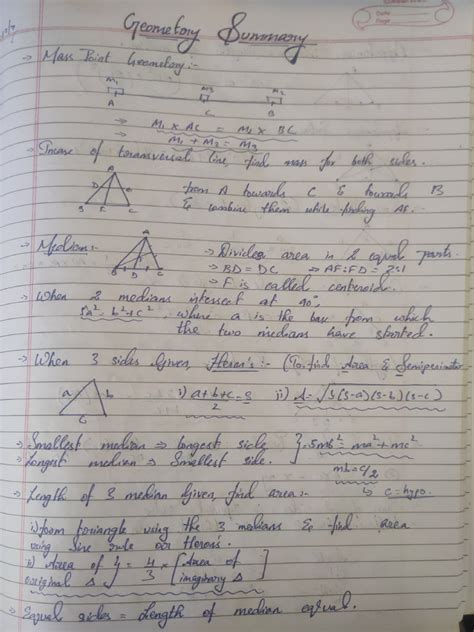 Geometory Summary
→ Mass Point Geometory :-
M₁ M₃ M₂
A C B
→ M₁ × AC = M₂ × BC
→ M₁ + M₂ = M₃
→ Incase of toransversal line, find mass for both sides.
A
D E
B F C
from A towards C & towards B
& combine them while finding AF.
→ Median:-
A
F
B D C
→ Divides area in 2 equal parts.
→ BD = DC → AF:FD = 2:1
→ F is called centeroid.
→ When 2 medians intersect at 90°,
5a² = b² + c², where a is the base from which
the two medians have started.
→ When 3 sides Given, Heron's :- (To find Area & Semiperimeter
a b
C
i) a+b+c = S
2
ii) A = √S(S-a)(S-b)(S-c)
→ Smallest median ⇒ longest side
→ Longest median ⇒ Smallest side.
} = 5mb² = ma² + mc²
mb = c/2
↳ c = hypo.
→ Length of 3 median Given, find area :-
i) form toriangle using the 3 medians & find area
using sine rule or Heron's.
ii) Area of } = 4 × [ Area of
original Δ } 3 [ imaginary Δ ]
→ Equal sides = Length of median equal.